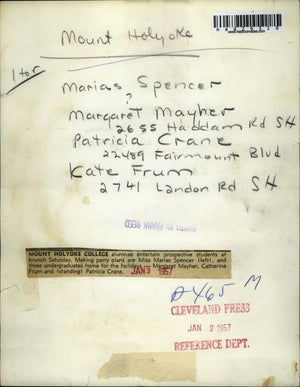 Mount Holyoke
1 to r
Marias Spencer
Margaret Mayher
2655 Haddam Rd SH
Patricia Crane
22489 Fairmount Blvd
Kate Frum
2741 Landon Rd SH
PHOTO BY FRANK REED
MOUNT HOLYOKE COLLEGE alumnae entertain prospective students at
brunch Saturday. Making party plans are Miss Marias Spencer (left), and
three undergraduates home for the holidays — Margaret Mayher, Catherine
Frum and (standing) Patricia Crane.
JAN 3 1957
465 M
CLEVELAND PRESS
JAN 2 1957
REFERENCE DEPT.